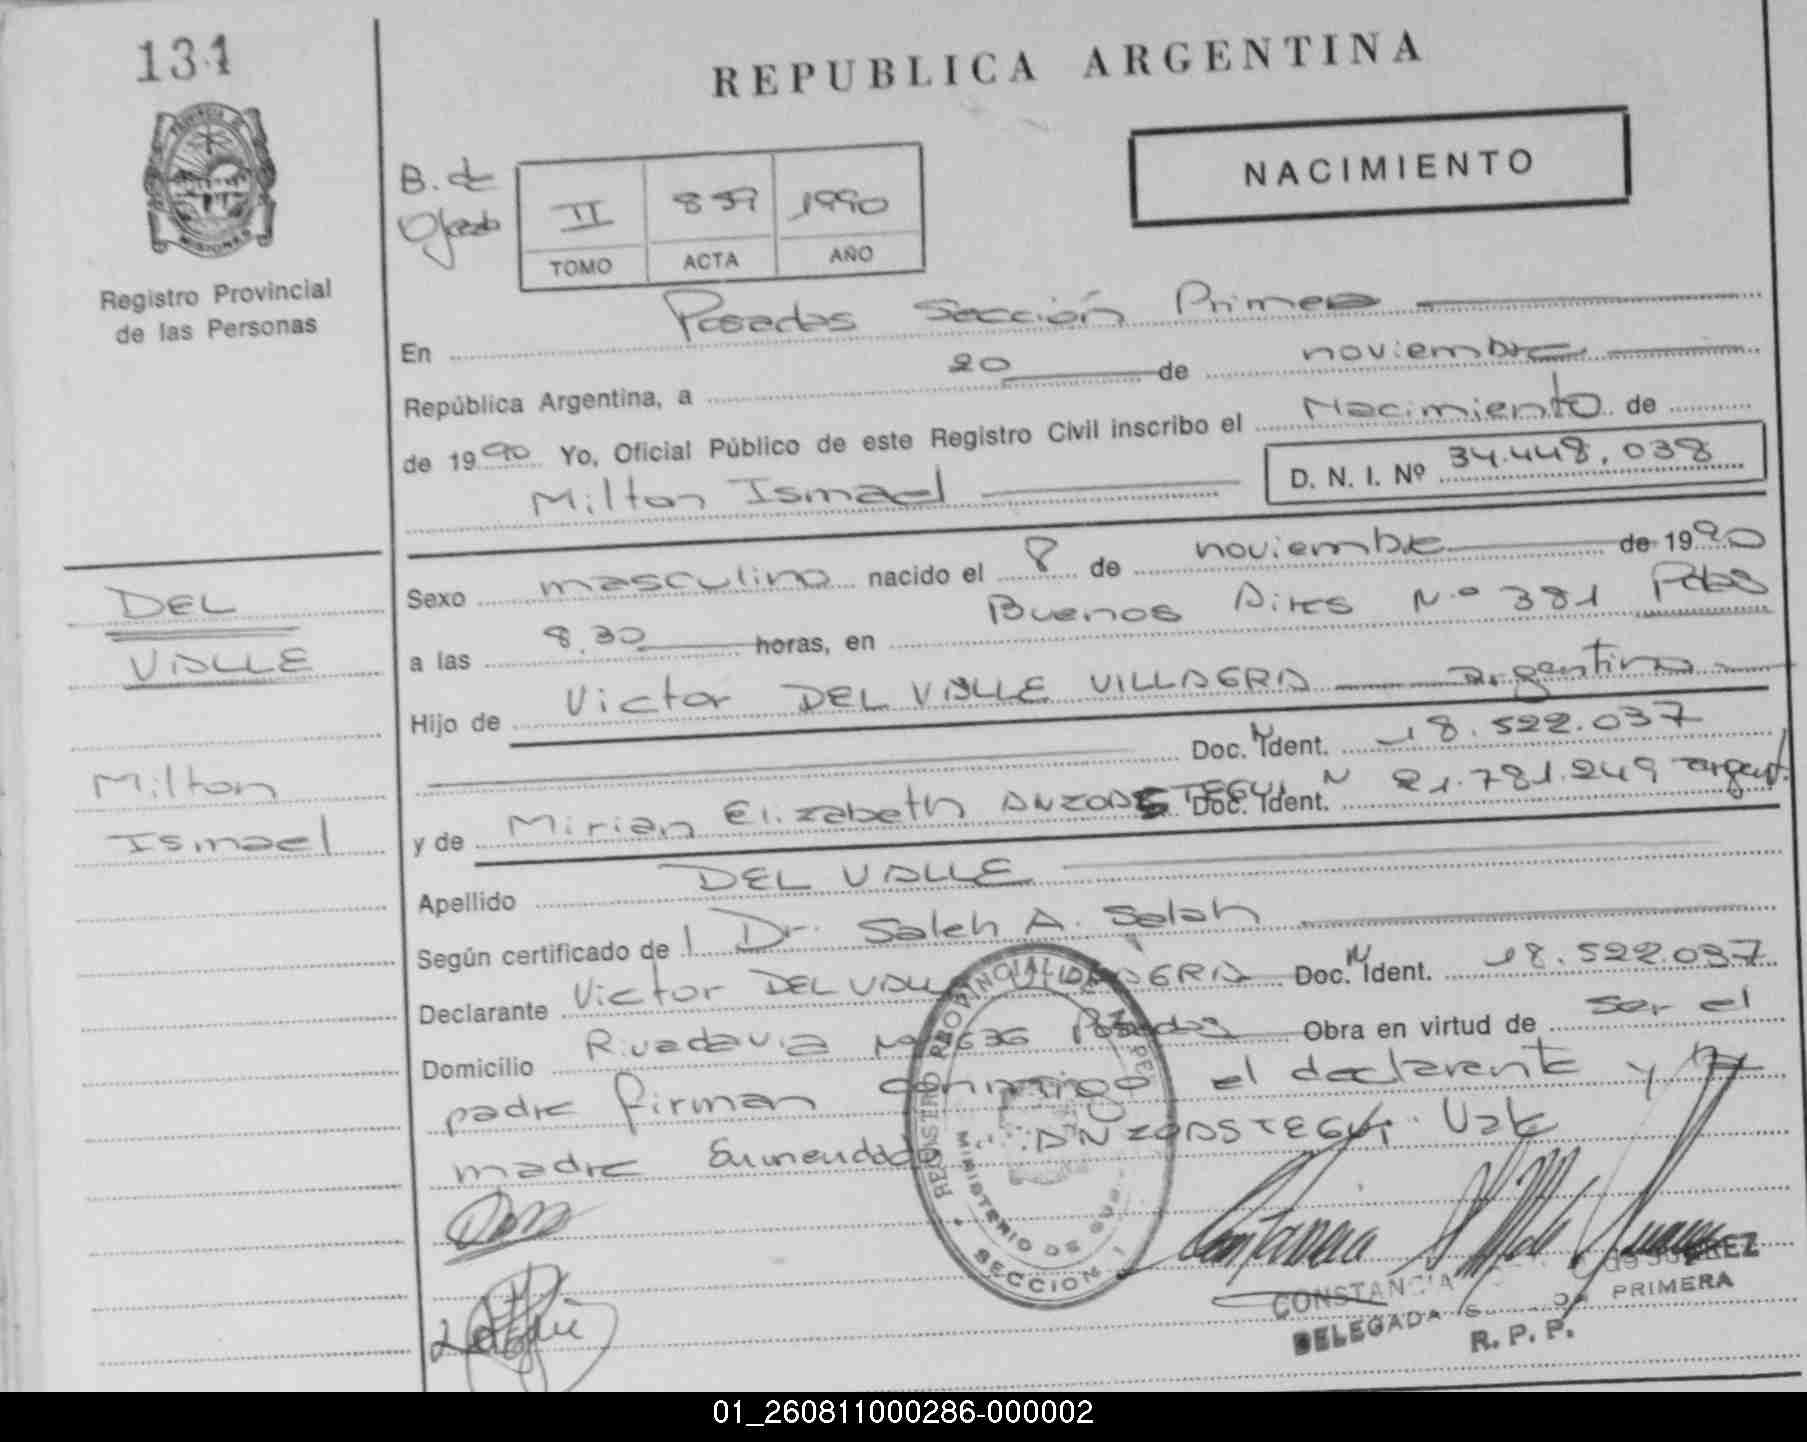 134
REPUBLICA ARGENTINA
NACIMIENTO
PROVINCIA DE
MISIONES
Registro Provincial
de las Personas
B. de
II 859 1990
TOMO ACTA AÑO
En Posadas Sección Primera
República Argentina, a 20 de noviembre
de 1990 Yo, Oficial Público de este Registro Civil inscribo el Nacimiento de
Milton Ismael D. N. I. Nº 34.448.038
DEL
VALLE
Milton
Ismael
Sexo masculino nacido el 8 de noviembre de 1990
a las 8.30 horas, en Buenos Aires Nº 381 Pdas
Hijo de Victor DEL VALLE VILLAGRA argentino
Doc. Ident. 18.522.037
y de Mirian Elizabeth ANZOASTEGUI Doc. Ident. 21.781.249 argent.
Apellido DEL VALLE
Según certificado de Dr. Saleh A. Salah
Declarante Victor DEL VALLE Doc. Ident. 18.522.037
Domicilio Rivadavia Posadas Obra en virtud de ser el
padre firman conmigo el declarante y la
madre Enmendado: ANZOASTEGUI. Vale
REGISTRO PROVINCIAL DE
MINISTERIO DE
SECCION 1
CONSTANCIA de SUAREZ
DELEGADA PRIMERA
R. P. P.
01_260811000286-000002